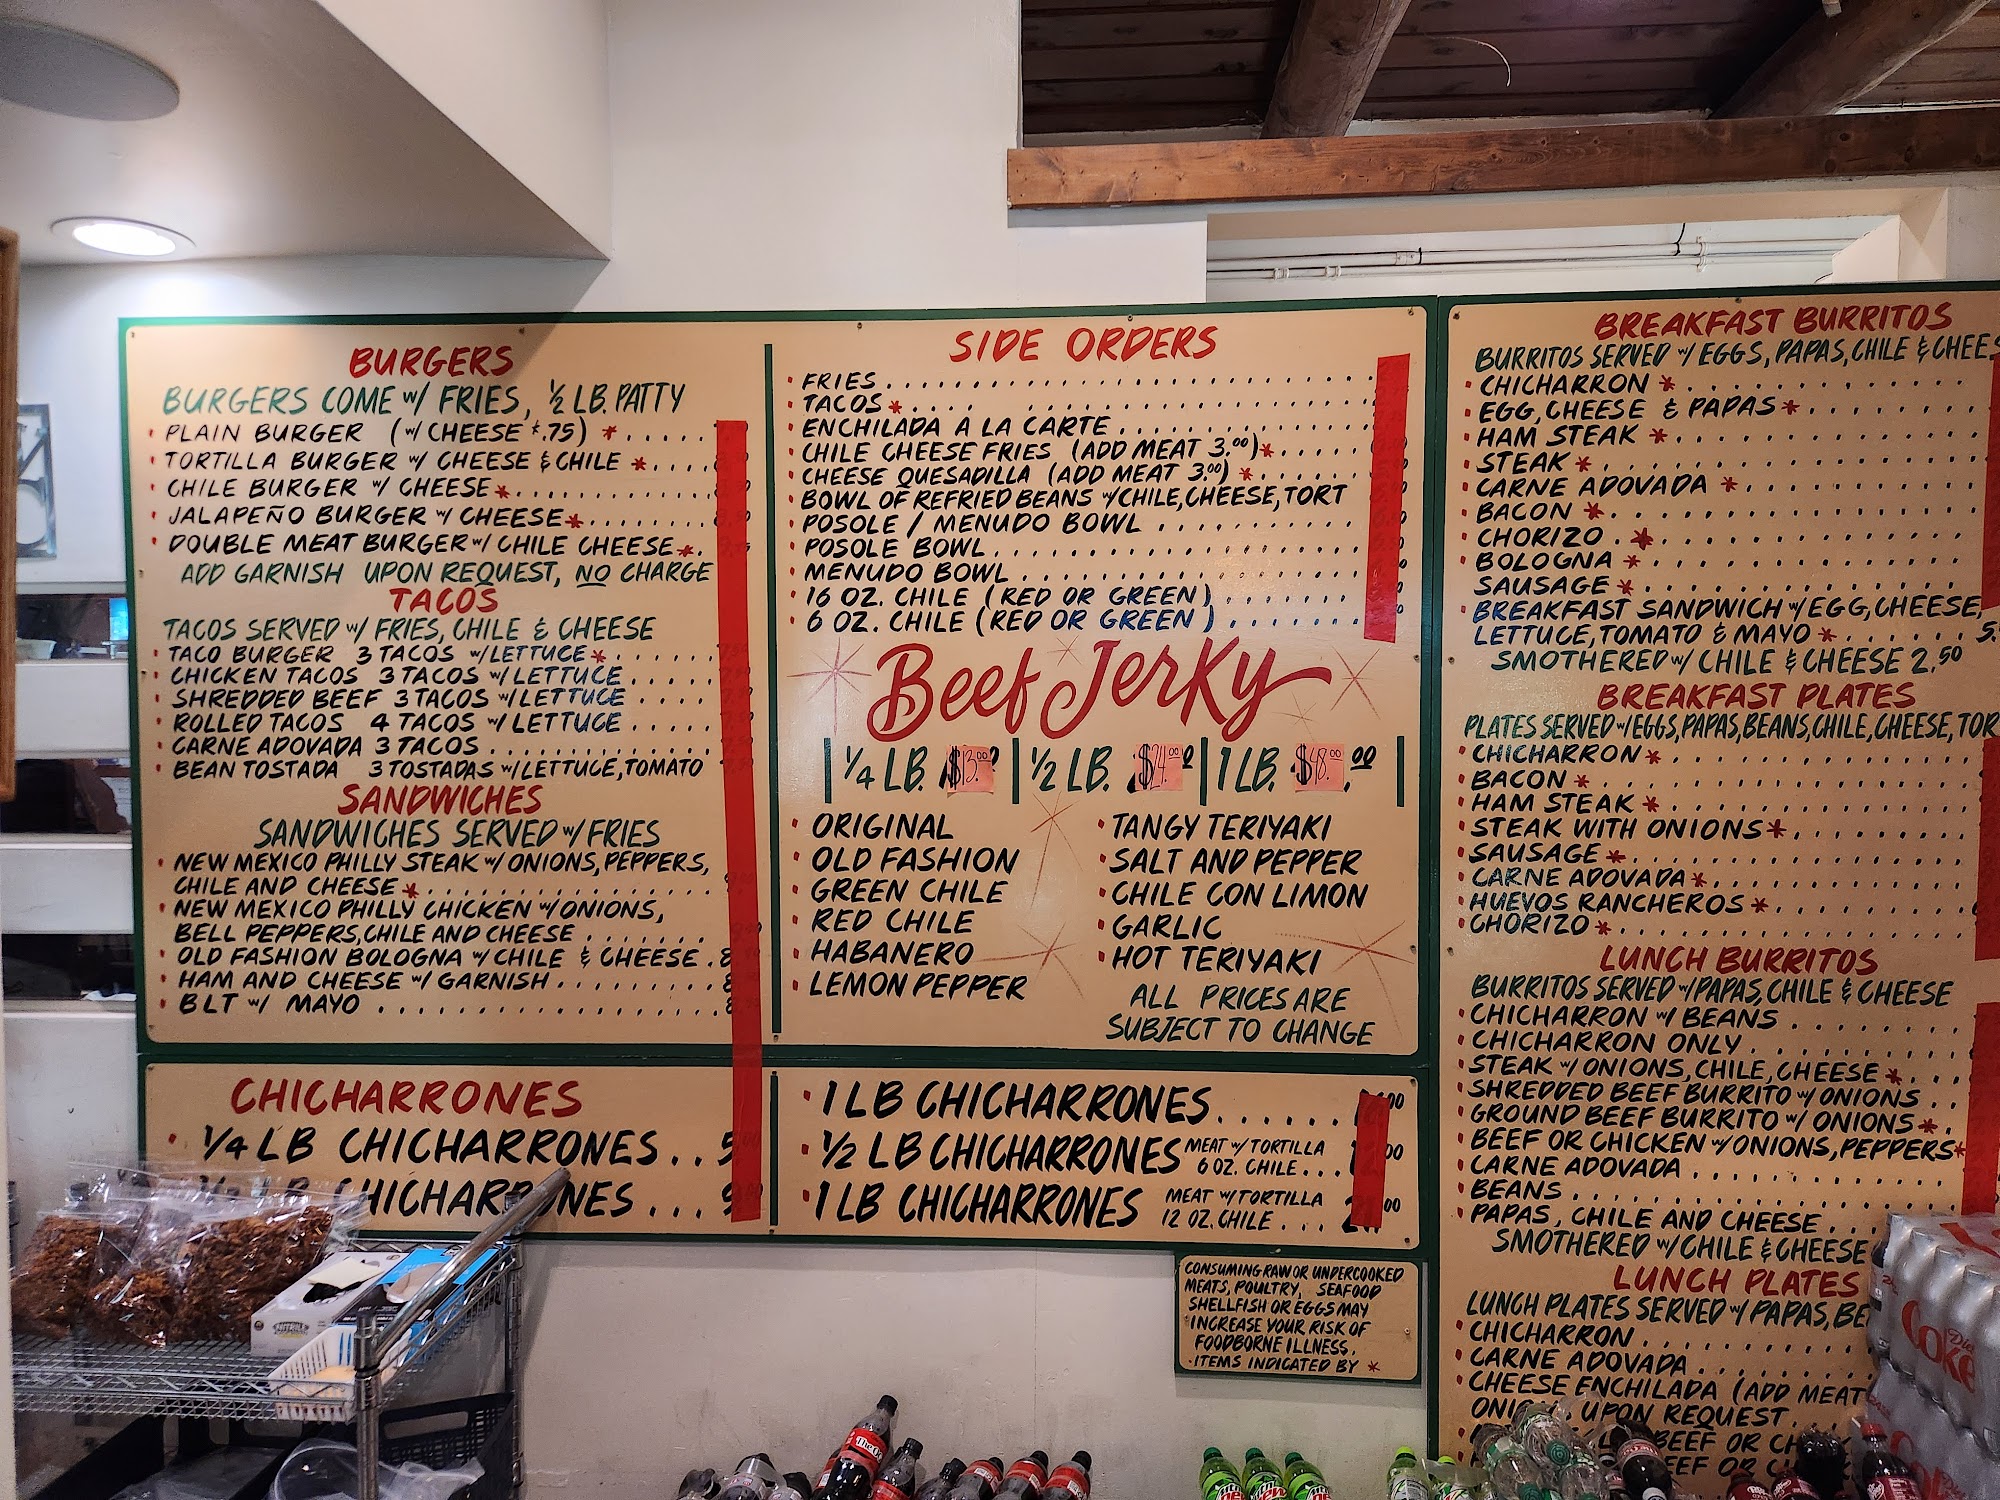 BURGERS
BURGERS COME W/ FRIES, ½ LB. PATTY
PLAIN BURGER (W/ CHEESE $.75) *
TORTILLA BURGER W/ CHEESE & CHILE *
CHILE BURGER W/ CHEESE *
JALAPEÑO BURGER W/ CHEESE *
DOUBLE MEAT BURGER W/ CHILE CHEESE *
ADD GARNISH UPON REQUEST, NO CHARGE
TACOS
TACOS SERVED W/ FRIES, CHILE & CHEESE
TACO BURGER 3 TACOS W/ LETTUCE *
CHICKEN TACOS 3 TACOS W/ LETTUCE
SHREDDED BEEF 3 TACOS W/ LETTUCE
ROLLED TACOS 4 TACOS W/ LETTUCE
CARNE ADOVADA 3 TACOS
BEAN TOSTADA 3 TOSTADAS W/ LETTUCE, TOMATO
SANDWICHES
SANDWICHES SERVED W/ FRIES
NEW MEXICO PHILLY STEAK W/ ONIONS, PEPPERS,
CHILE AND CHEESE *
NEW MEXICO PHILLY CHICKEN W/ ONIONS,
BELL PEPPERS, CHILE AND CHEESE
OLD FASHION BOLOGNA W/ CHILE & CHEESE
HAM AND CHEESE W/ GARNISH
BLT W/ MAYO
SIDE ORDERS
FRIES
TACOS *
ENCHILADA A LA CARTE
CHILE CHEESE FRIES (ADD MEAT 3.00) *
CHEESE QUESADILLA (ADD MEAT 3.00) *
BOWL OF REFRIED BEANS W/ CHILE, CHEESE, TORT
POSOLE / MENUDO BOWL
POSOLE BOWL
MENUDO BOWL
16 OZ. CHILE (RED OR GREEN)
6 OZ. CHILE (RED OR GREEN)
Beef Jerky
¼ LB. $13.00 ½ LB. $24.00 1 LB. $48.00
ORIGINAL
OLD FASHION
GREEN CHILE
RED CHILE
HABANERO
LEMON PEPPER
TANGY TERIYAKI
SALT AND PEPPER
CHILE CON LIMON
GARLIC
HOT TERIYAKI
ALL PRICES ARE
SUBJECT TO CHANGE
CHICHARRONES
¼ LB CHICHARRONES
LB CHICHARRONES
1 LB CHICHARRONES
½ LB CHICHARRONES MEAT W/ TORTILLA
6 OZ. CHILE
1 LB CHICHARRONES MEAT W/ TORTILLA
12 OZ. CHILE
CONSUMING RAW OR UNDERCOOKED
MEATS, POULTRY, SEAFOOD
SHELLFISH OR EGGS MAY
INCREASE YOUR RISK OF
FOODBORNE ILLNESS.
ITEMS INDICATED BY *
BREAKFAST BURRITOS
BURRITOS SERVED W/ EGGS, PAPAS, CHILE & CHEES
CHICHARRON *
EGG, CHEESE & PAPAS *
HAM STEAK *
STEAK *
CARNE ADOVADA *
BACON *
CHORIZO *
BOLOGNA *
SAUSAGE *
BREAKFAST SANDWICH W/ EGG, CHEESE,
LETTUCE, TOMATO & MAYO *
SMOTHERED W/ CHILE & CHEESE 2.50
BREAKFAST PLATES
PLATES SERVED W/ EGGS, PAPAS, BEANS, CHILE, CHEESE, TOR
CHICHARRON *
BACON *
HAM STEAK *
STEAK WITH ONIONS *
SAUSAGE *
CARNE ADOVADA *
HUEVOS RANCHEROS *
CHORIZO *
LUNCH BURRITOS
BURRITOS SERVED W/ PAPAS, CHILE & CHEESE
CHICHARRON W/ BEANS
CHICHARRON ONLY
STEAK W/ ONIONS, CHILE, CHEESE *
SHREDDED BEEF BURRITO W/ ONIONS
GROUND BEEF BURRITO W/ ONIONS *
BEEF OR CHICKEN W/ ONIONS, PEPPERS *
CARNE ADOVADA
BEANS
PAPAS, CHILE AND CHEESE
SMOTHERED W/ CHILE & CHEESE
LUNCH PLATES
LUNCH PLATES SERVED W/ PAPAS, BE
CHICHARRON
CARNE ADOVADA
CHEESE ENCHILADA (ADD MEAT
UPON REQUEST
BEEF OR CH
Diet Coke